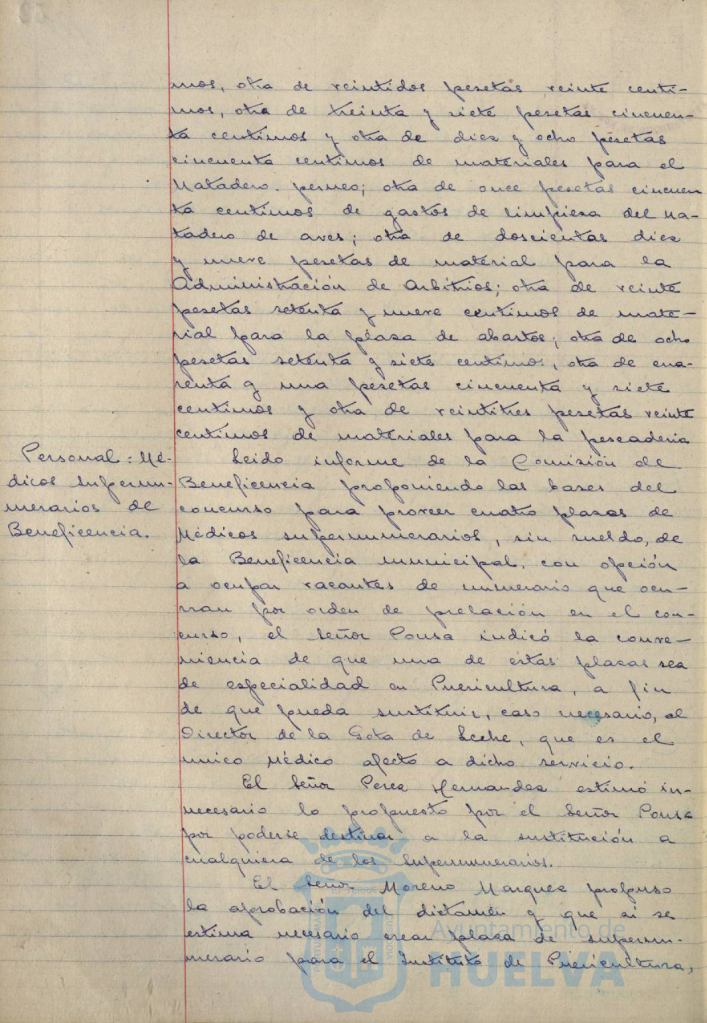 mos, otra de veintidos pesetas veinte centi-
mos, otra de treinta y siete pesetas cincuen-
ta centimos y otra de diez y ocho pesetas
cincuenta centimos de materiales para el
Matadero. permeo; otra de once pesetas cincuen
ta centimos de gastos de limpieza del Ma-
tadero de aves; otra de doscientas diez
y nueve pesetas de material para la
Administración de Arbitrios; otra de veinte
pesetas setenta y nueve centimos de mate-
rial para la plaza de abastos; otra de ocho
pesetas setenta y siete centimos, otra de cua-
renta y una pesetas cincuenta y siete
centimos y otra de veintitres pesetas veinte
centimos de materiales para la pescaderia
Personal: Mé-
dicos Supernu-
merarios de
Beneficencia.
Leido informe de la Comisión de
Beneficencia proponiendo las bases del
concurso para proveer cuatro plazas de
Médicos supernumerarios, sin sueldo, de
la Beneficencia municipal, con opción
a ocupar vacantes de numerario que ocu-
rran por orden de prelación en el con-
curso, el Señor Pousa indicó la conve-
niencia de que una de estas plazas sea
de especialidad en Puericultura, a fin
de que pueda sustituir, caso necesario, al
Director de la Gota de Leche, que es el
unico Médico afecto a dicho servicio.
El Señor Perez Hernandez estimó in-
necesario lo propuesto por el Señor Pousa
por poderse destinar a la sustitución a
cualquiera de los Supernumerarios.
El Señor Moreno Marquez propuso
la aprobación del dictamen y que si se
estima necesario crear plaza de supernu-
merario para el Instituto de Puericultura,
Ayuntamiento de
HUELVA